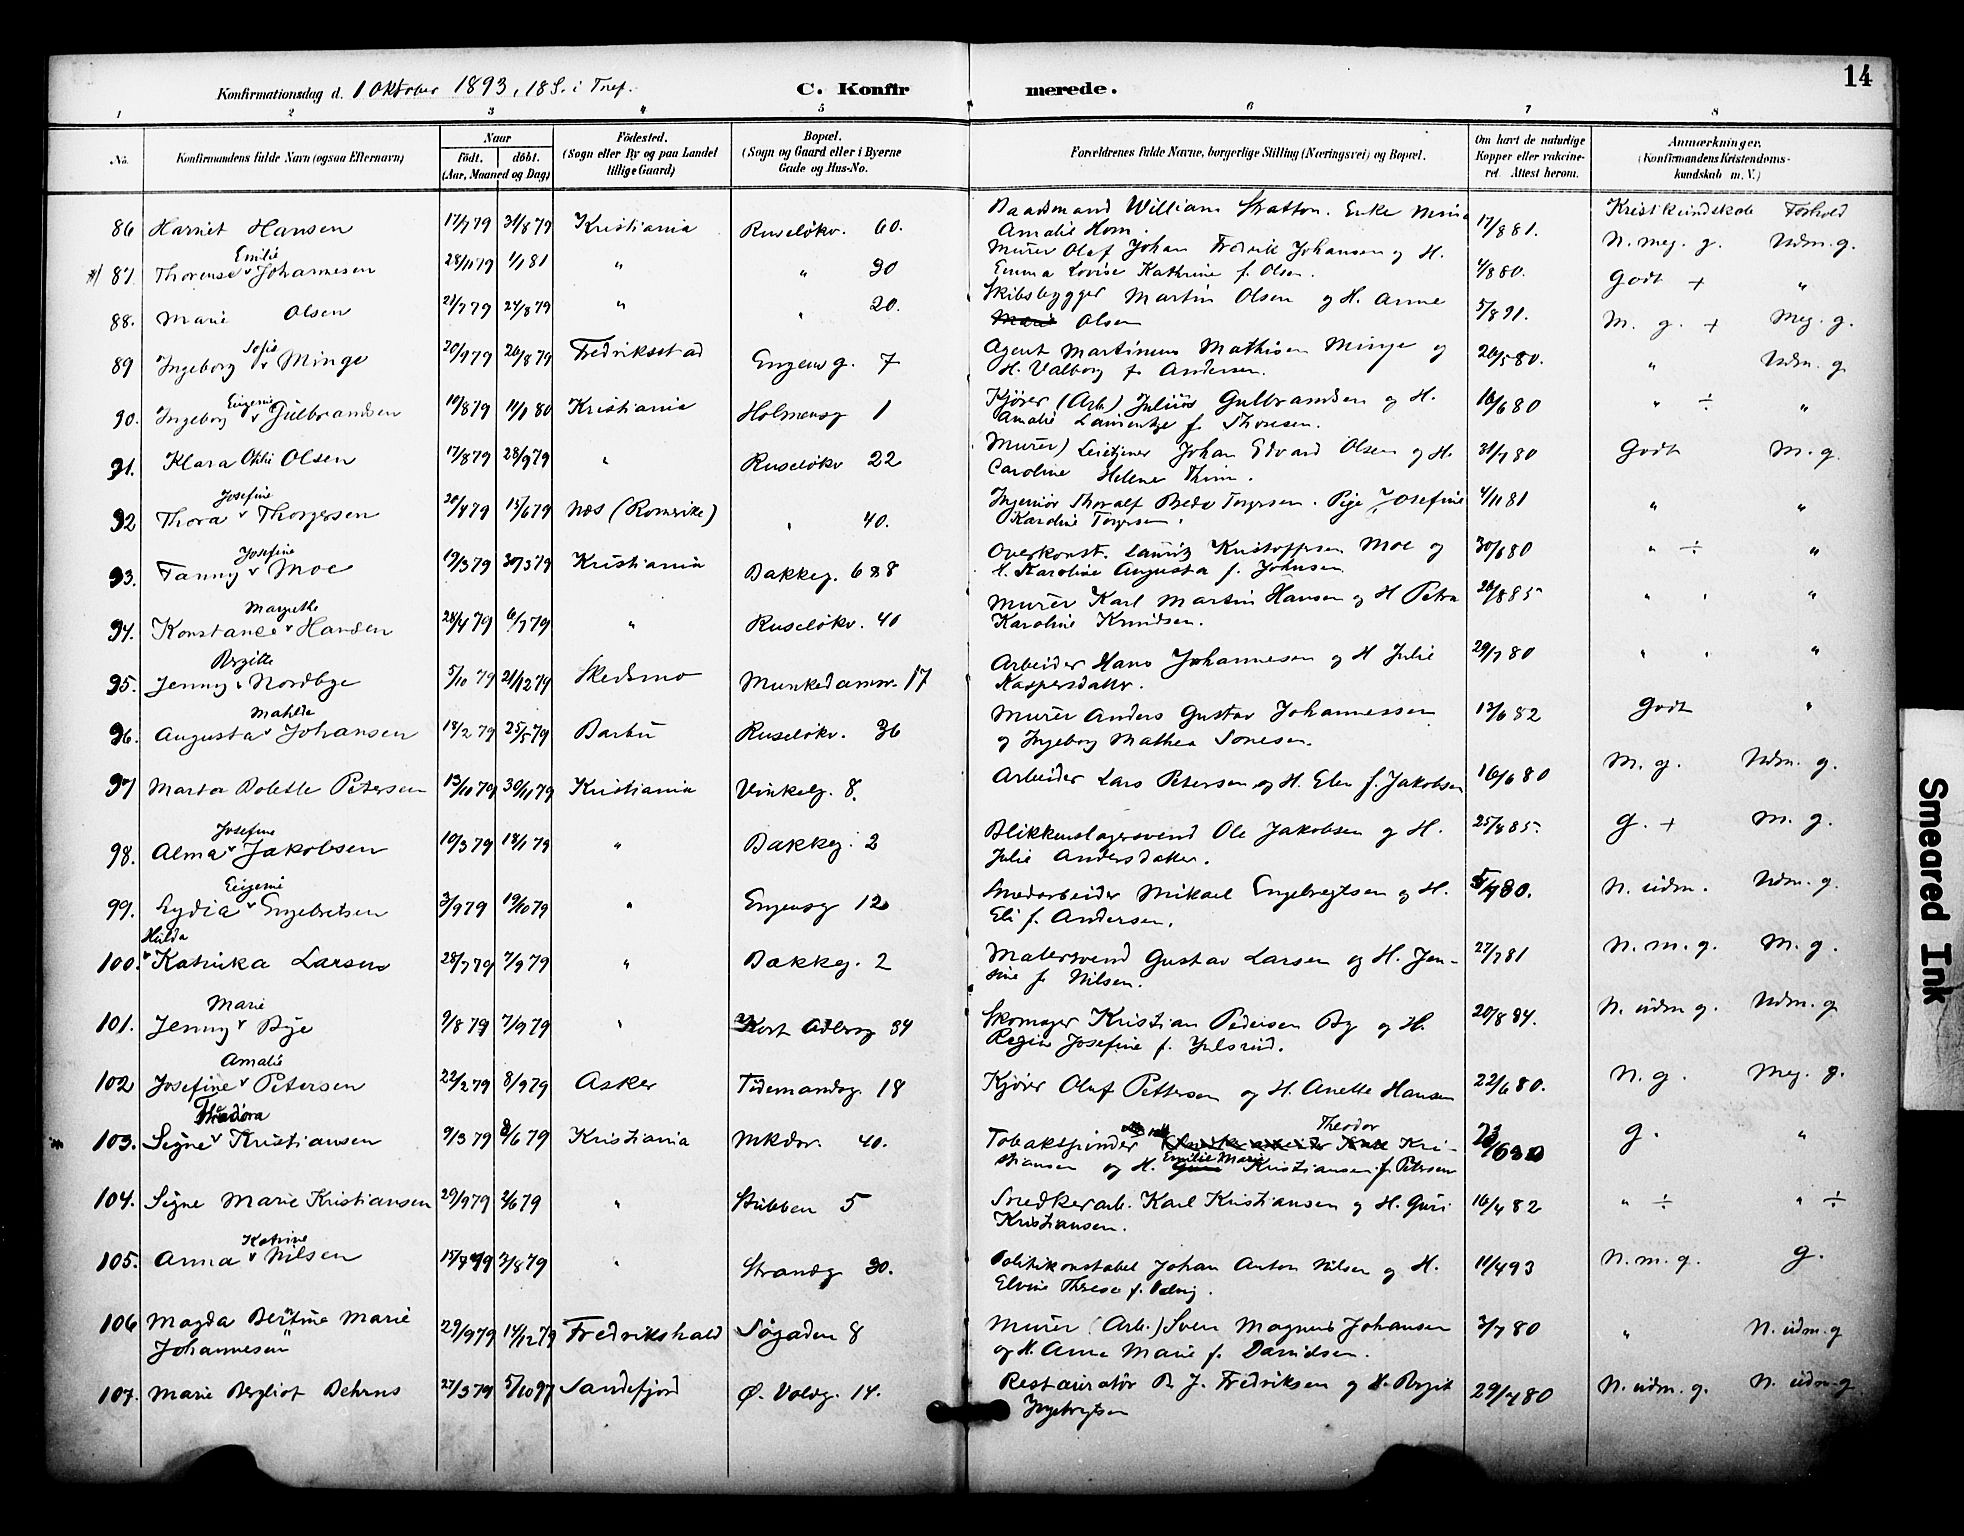 14
Konfirmationsdag d. 1 Oktober 1893, 18 S. i Tref.
C. Konfirmerede.
1 2 3 4 5 6 7 8
No. Konfirmandens fulde Navn (ogsaa Efternavn) Naar født. døbt. (Aar, Maaned og Dag) Fødested. (Sogn eller By og paa Landet tillige Gaard) Bopæl. (Sogn og Gaard eller i Byerne Gade og Hus-No. Forældrenes fulde Navne, borgerlige Stilling (Næringsvei) og Bopæl. Om havt de naturlige Kopper eller vakcineret Attest herom. Anmærkninger. (Konfirmandens Kristendomskundskab m. V.)
Kristkundskab Forhold
86 Harriet Hansen 17/7 79 31/8 79 Kristiania Ruseløkv. 60. Baadsmand William Stratton. Enke
Amalie Horn. 17/8 81. N. meg. g. Udm. g.
Emilie
87. Thorense v Johannesen 28/11 79 1/1 81 " " 30 Murer Olaf Johan Fredrik Johansen og H.
Emma Lovise Kathrine f. Olsen. 4/8 80. Godt + "
88. Marie Olsen 21/7 79 24/8 79 " " 20. Skibsbygger Martin Olsen og H. Anne
Marie Olsen 5/8 91. M. g. + Meg. g.
Sofie
89 Ingeborg v Minge 20/7 79 26/8 79 Fredriksstad Engens g. 7 Agent Martinius Mathisen Minge og
H. Valborg f. Andersen. 26/5 80. " Udm. g
Eugenie
90. Ingeborg v Gulbrandsen 10/8 79 11/1 80 Kristiania Holmensg 1 Kjører (Arb.) Julius Gulbrandsen og H.
Amalie Laurentze f. Thoresen. 16/6 80 " ÷ "
91. Klara Othi Olsen 17/8 79 28/9 79 " Ruseløkv 22 Murer) Leietjener Johan Edvard Olsen og H.
Caroline Helene Thim. 31/7 80 Godt M. g.
Josefine
92 Thora v Thorgersen 20/4 79 15/6 79 Næs (Romerike) " 40. Ingeniør Thoralf Torgersen. Pige Josefine
Karoline Torgersen. 4/11 81 " "
Josefine
93. Fanny v Moe 19/3 79 30/3 79 Kristiania Bakkeg. 6 & 8 Overkonst. Lauritz Kristoffersen Moe og
H. Karoline Augusta f. Johnsen. 30/6 80 " ÷ "
Margrethe
94. Konstance v Hansen 24/4 79 6/7 79 " Ruseløkv. 40 Murer Karl Martin Hansen og H Petra
Karoline Knudsen. 26/8 85 " " "
Birgitte
95. Jenny v Nordbye 5/10 79 21/12 79 Skedsmo Munkedamsv. 17 Arbeider Hans Johannesen og H Julie
Kaspersdatter. 29/7 80 " " "
Mathilde
96. Augusta v Johansen 18/2 79 25/5 79 Barbu Ruseløkv. 36 Murer Anders Gustav Johannessen
og Ingeborg Mathea Sonesen. 12/6 82 Godt "
97 Marta Dolette Petersen 13/10 79 30/11 79 Kristiania Vinkelg. 8. Arbeider Lars Petersen og H. Elen f. Jakobsen 16/6 80 M. g. Udm. g.
Josefine
98. Alma v Jakobsen 10/3 79 18/1 79 " Bakkeg. 2 Blikkenslagersvend Ole Jakobsen og H.
Julie Andersdatter. 25/4 85. g. + M. g.
Eugenie
99. Lydia v Engebretsen 3/9 79 19/10 79 " Engensg 12 Smedarbeider Mikael Engebregtsen og H.
Eli f. Andersen. 5/7 80. N. udm. Udm. g.
Hulda
100. v Katinka Larsen 28/7 79 7/9 79 " Bakkeg. 2 Malersvend Gustav Larsen og H. Jensine
f. Nilsen. 27/7 81 N. m. g. M. g.
Marie
101. Jenny v Bye 9/8 79 7/9 79 " Kort Adlersg 34 Skomager Kristian Pedersen By og H.
Regine Josefine f. Julsrud. 20/8 84. N. udm g. Udm. g
Amalie
102 Josefine v Petersen 22/2 79 8/9 79 Asker Tidemandsg. 18 Kjører Oluf Pettersen og H. Anette Hansen 22/6 80. N. g. Meg. g.
Theodora
103. Signe v Kristiansen 9/3 79 8/6 79 Kristiania Mkdsv. 40. Tobakspinder Theodor Kristiansen
og H. Emilie Marie Kristiansen f. Petersen g. "
104. Signe Marie Kristiansen 29/9 79 2/6 79 " Stubben 5 Snedkerarb. Karl Kristiansen og H. Guri
Kristiansen. 16/4 82 " ÷ " ÷
Katrine
105. Anna v Nilsen 15/7 79 3/8 79 " Strandg 30. Politikonstabel Johan Anton Nilsen og H.
Elvine Therese f. 11/4 93 N. m. g. g.
106 Magda Bertine Marie
Johannesen 29/9 79 14/12 79 Fredrikshald Søgaden 8 Murer (Arb.) Sven Magnus Johansen
og H. Anne Marie f. Davidsen. 3/7 80 " N. udm. g
107. Marie Bergliot Behrns 27/3 79 5/10 97 Sandefjord Ø. Voldg. 14. Restauratør B. J. Fredriksen og H. Birgit
Ingebregtsen 29/7 80 N. udm. g. N. udm. g.
Smeared Ink